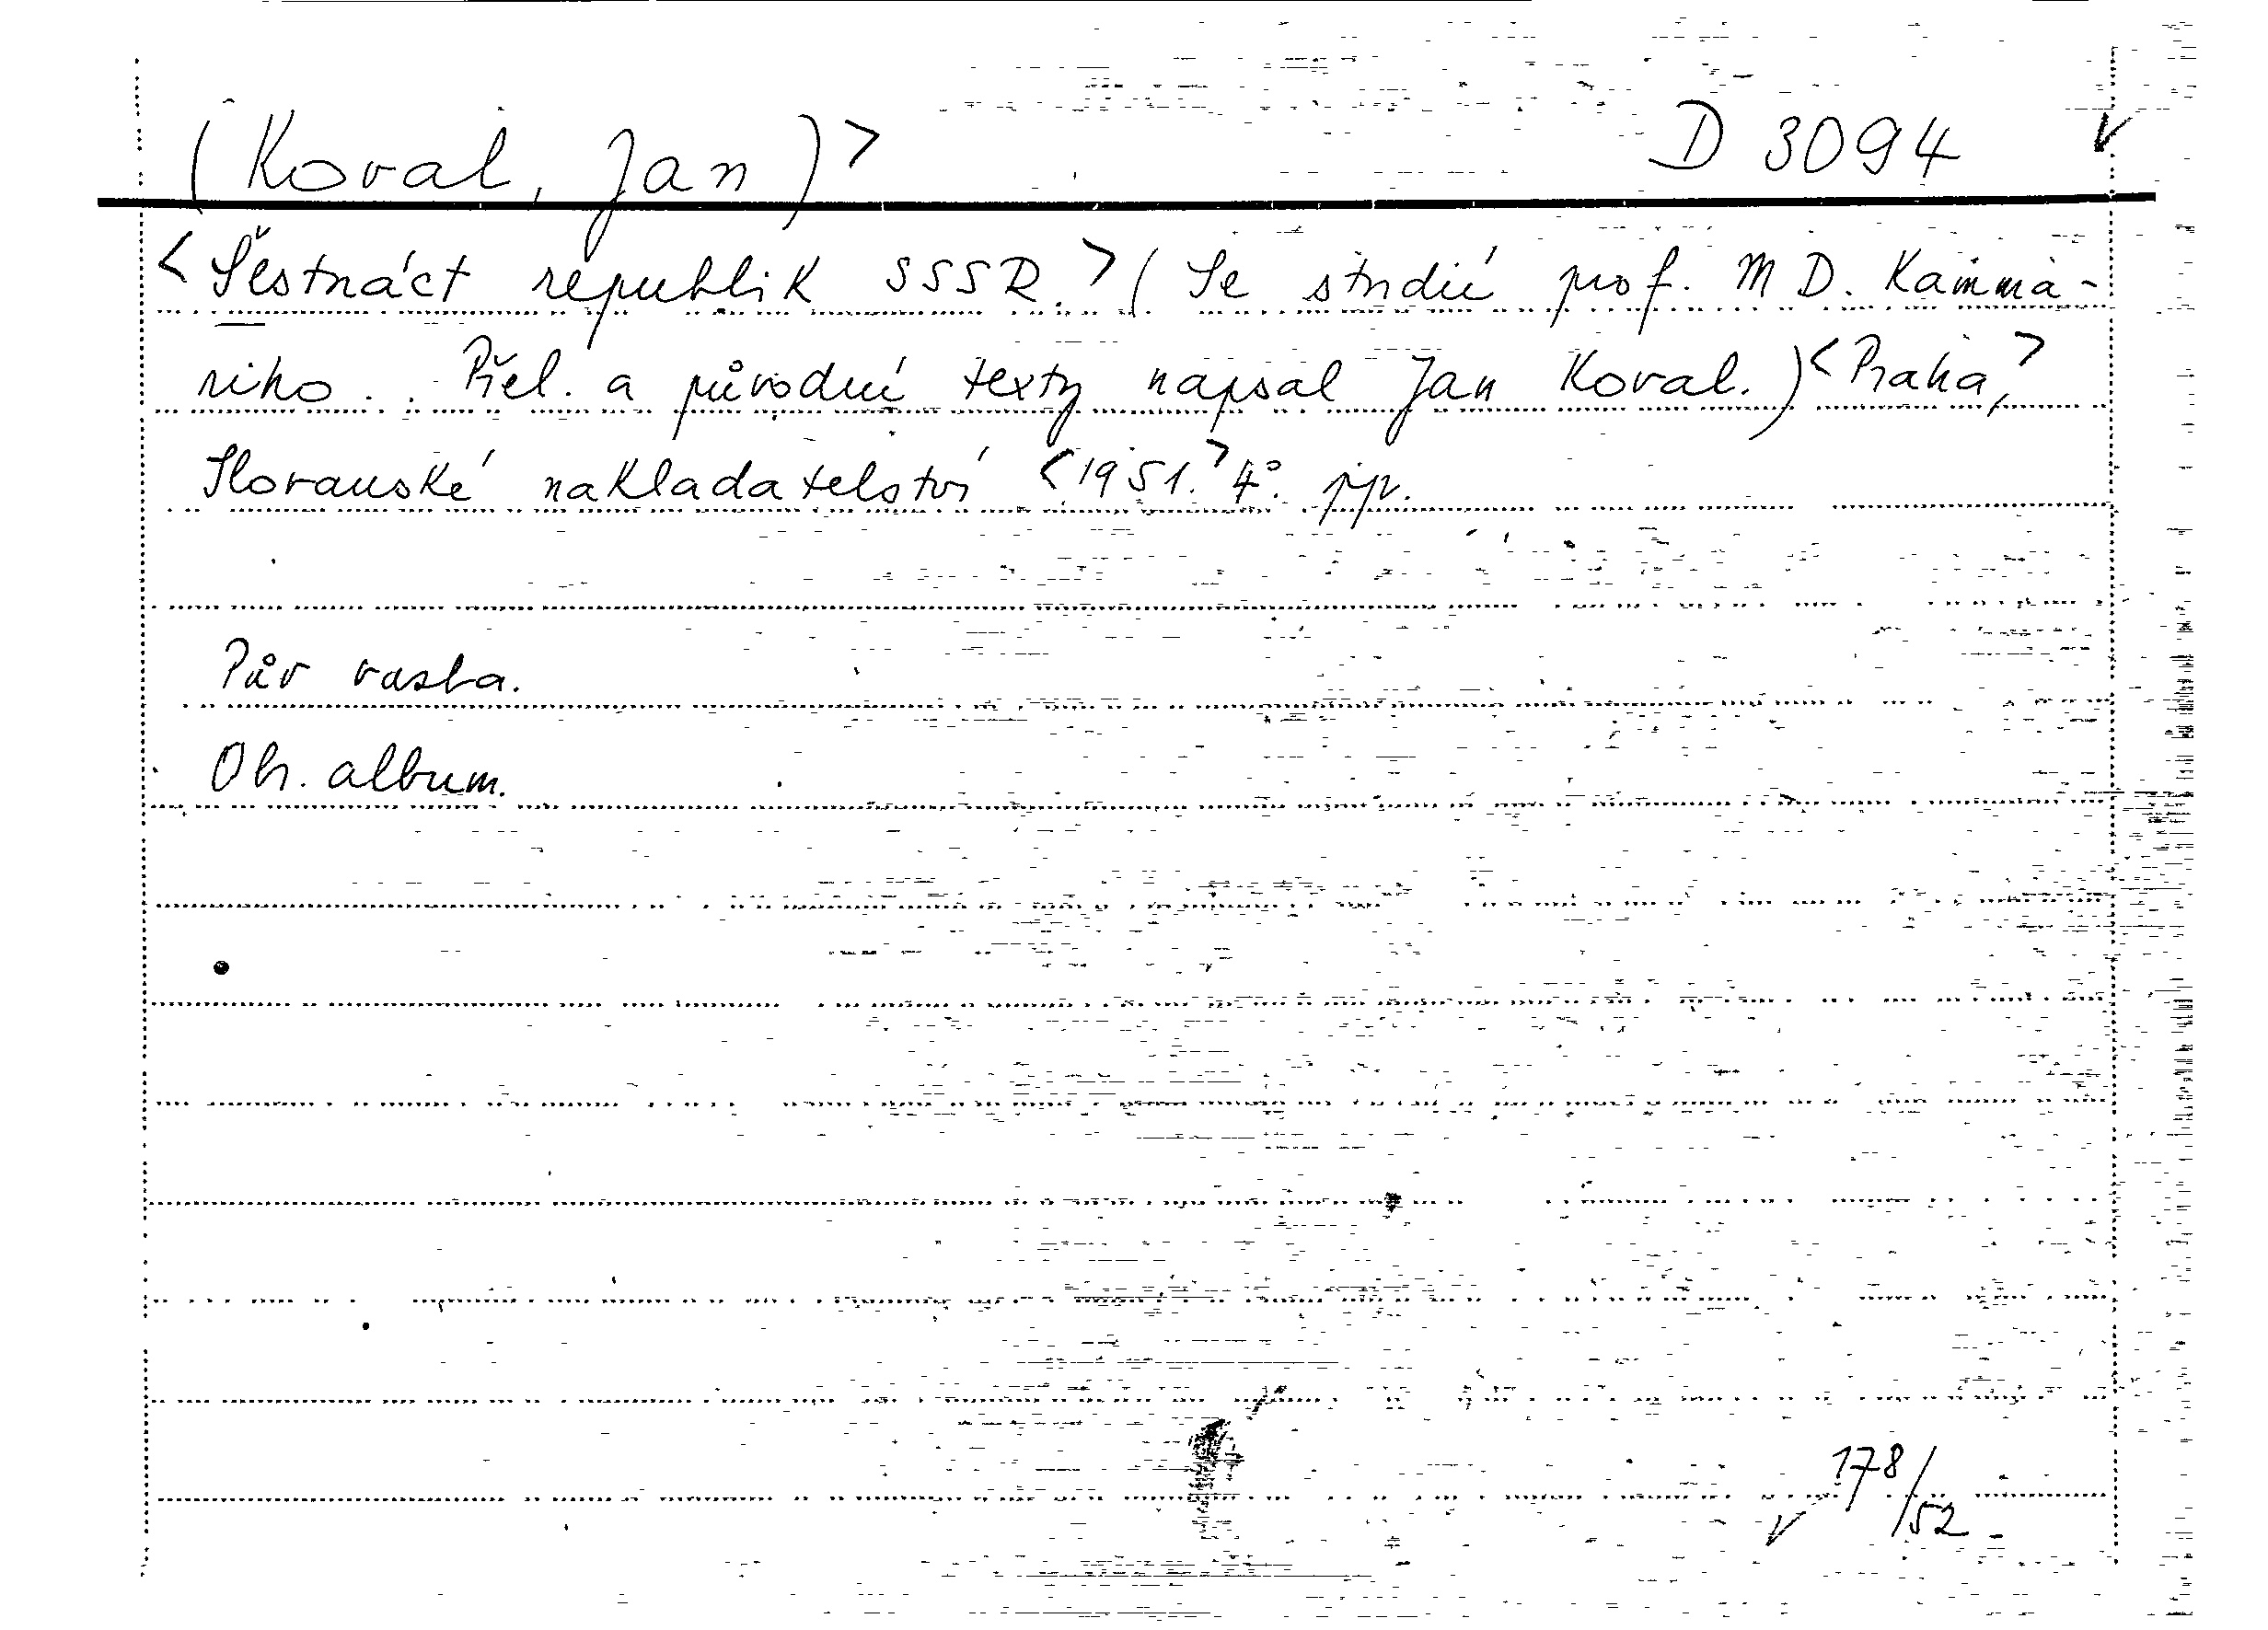 (Koval, Jan)> D 3094
<Šestnáct republik SSSR.>(Se studií prof. M D. Kammá-
riho.. Přel. a původní texty napsal Jan Koval.)<Praha,>
Slovanské nakladatelství <1951.> 4°. pp.
Pův vazba.
Obr. album.
178/52